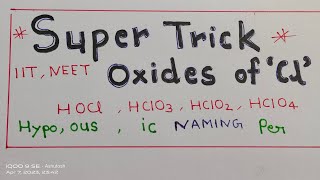 * Super Trick *
IIT, NEET Oxides of 'Cl'
HOCl, HClO3, HClO2, HClO4
Hypo, ous, ic NAMING Per
IQOO 9 SE - Ashutosh
Apr 7, 2023, 23:42